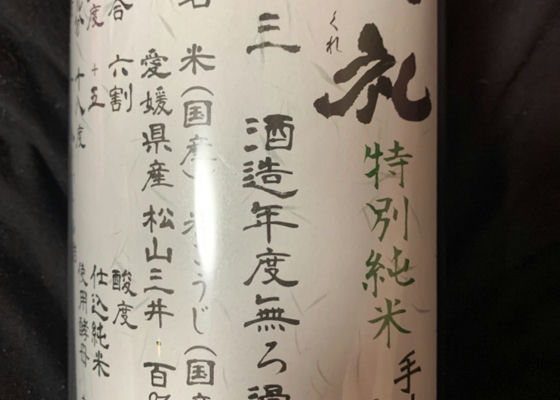 くれ
礼
特別純米
手
三 酒造年度無ろ
米(国産) 米こうじ(国産
愛媛県産 松山三井 百
合 六割 酸度
度 十五 仕込純米
十八度 使用酵母